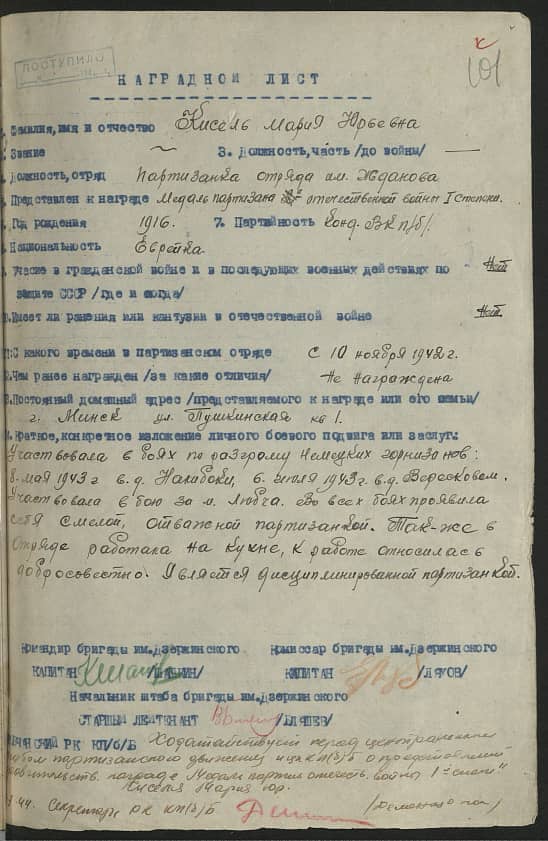 ПОСТУПИЛО
101
НАГРАДНОЙ ЛИСТ
Фамилия, имя и отчество Кисель Мария Юрьевна
Звание ~ 3. Должность, часть /до войны/ —
Должность, отряд Партизанка отряда им. Жданова
Представлен к награде Медаль партизана отечественной войны I степени.
Год рождения 1916. 7. Партийность канд. ВКП/б/.
Национальность Еврейка
Участие в гражданской войне и в последующих военных действиях по
защите СССР /где и когда/ Нет
Имеет ли ранения или контузии в отечественной войне Нет.
С какого времени в партизанском отряде с 10 ноября 1942 г.
Чем ранее награжден /за какие отличия/ Не награждена
Постоянный домашний адрес /представляемого к награде или его семьи/
г. Минск ул. Пушкинская № 1.
Краткое, конкретное изложение личного боевого подвига или заслуг:
Участвовала в боях по разгрому немецких горнизонов:
8 мая 1943 г в.д. Налибоки, 6. июля 1943 г. в.д.
Участвовала в бою за м. Любча. Во всех боях проявила
себя смелой, отважной партизанкой. Так-же в
отряде работала на кухне, к работе относилась
добросовестно. Является дисциплинированной партизанкой.
Командир бригады им. Дзержинского Комиссар бригады им. Дзержинского
КАПИТАН КАПИТАН /ЛЯХОВ/
Начальник штаба бригады им. Дзержинского
СТАРШИЙ ЛЕЙТЕНАНТ
РК КП/б/Б Ходатайствует перед центральным
штабом партизанского движения и цк кп(б)б о представлении
правительств. награде Медаль партиз. отечеств. войны 1й степ
Кисель Мария Юр.
44. Секретарь РК КП(б)Б